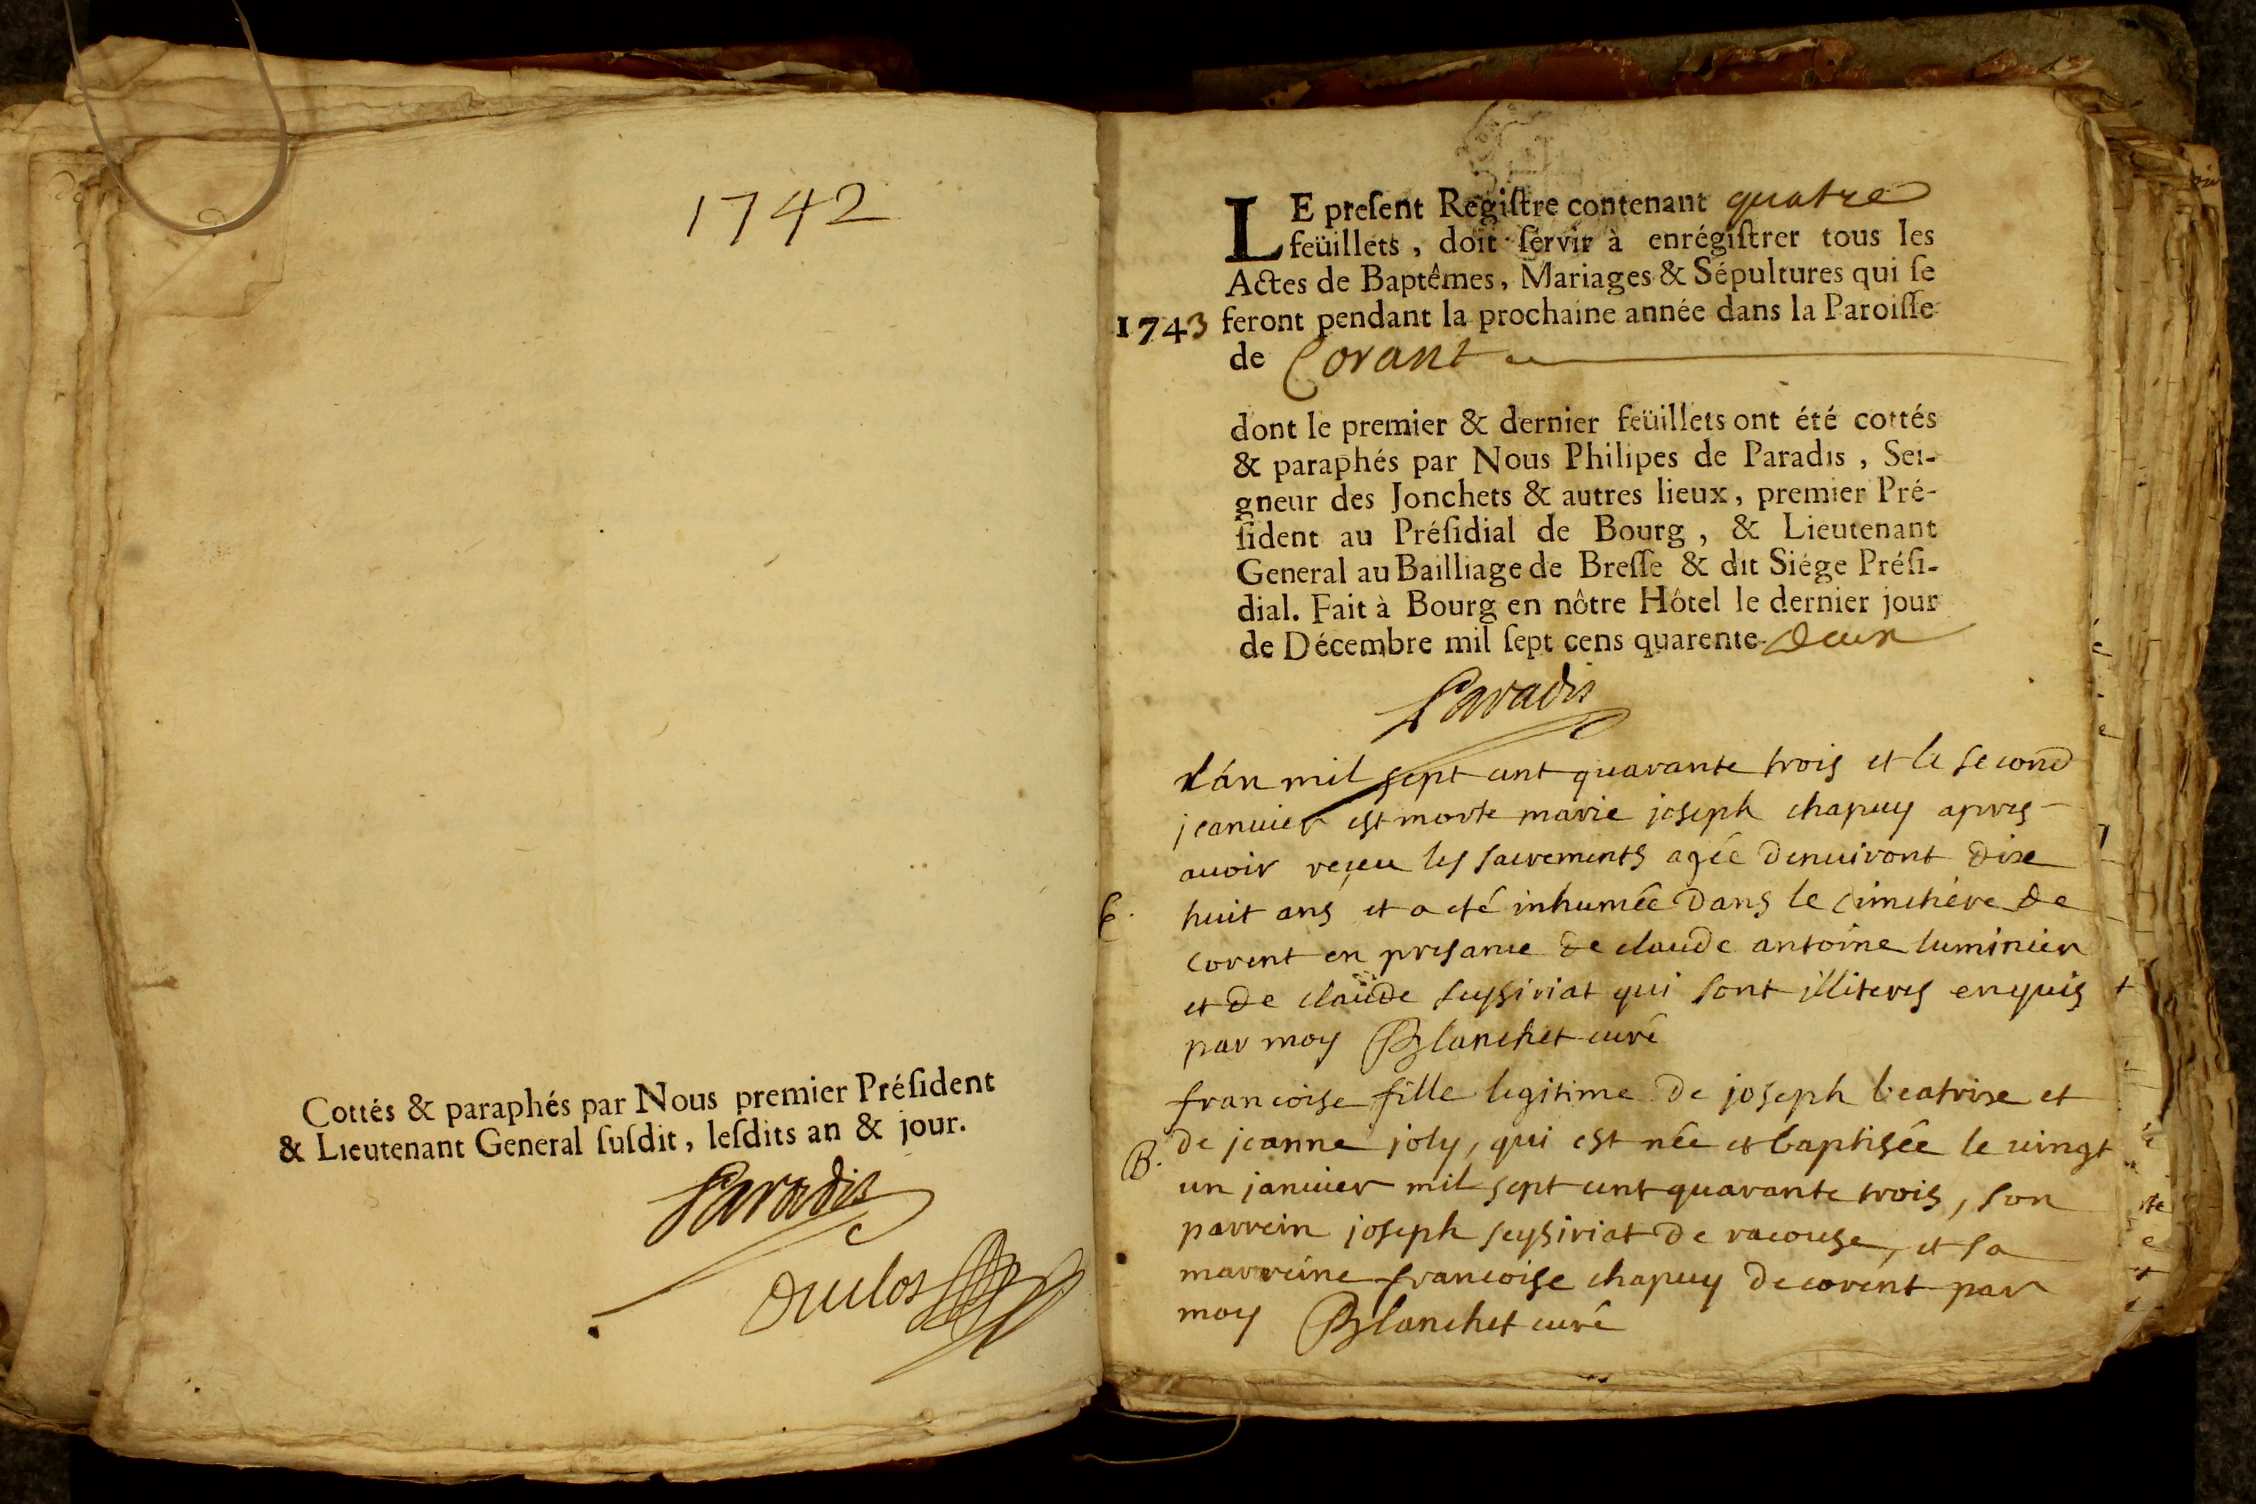 1742
Cottés & paraphés par Nous premier Préſident
& Lieutenant General ſuſdit, leſdits an & jour.
Paradis
Duclos
LE preſent Regiſtre contenant quatre
feüillets, doit ſervir à enrégiſtrer tous les
Actes de Baptêmes, Mariages & Sépultures qui ſe
1743 feront pendant la prochaine année dans la Paroiſſe
de Corant
dont le premier & dernier feüillets ont été cottés
& paraphés par Nous Philipes de Paradis, Sei-
gneur des Jonchets & autres lieux, premier Pré-
ſident au Préſidial de Bourg, & Lieutenant
General au Bailliage de Breſſe & dit Siége Préſi-
dial. Fait à Bourg en nôtre Hôtel le dernier jour
de Décembre mil ſept cens quarente deux
Paradis
l'án mil sept cent quarante trois et le second
jeanvier est morte marie joseph chapuy apres
avoir reçeu les sacrements agée denuiront dixe
huit ans et a eté inhumée dans le cimetiere de
corent en presance de claude antoine luminier
et de claude seysiriat qui sont illiteres enquis
par moy Blanchet curé
francoise fille legitime de joseph beatrixe et
B. de jeanne joly, qui est née et baptisée le vingt
un janvier mil sept cent quarante trois, son
parrein joseph seysiriat de racouse, et sa
marreine francoise chapuy de corent par
moy Blanchet curé